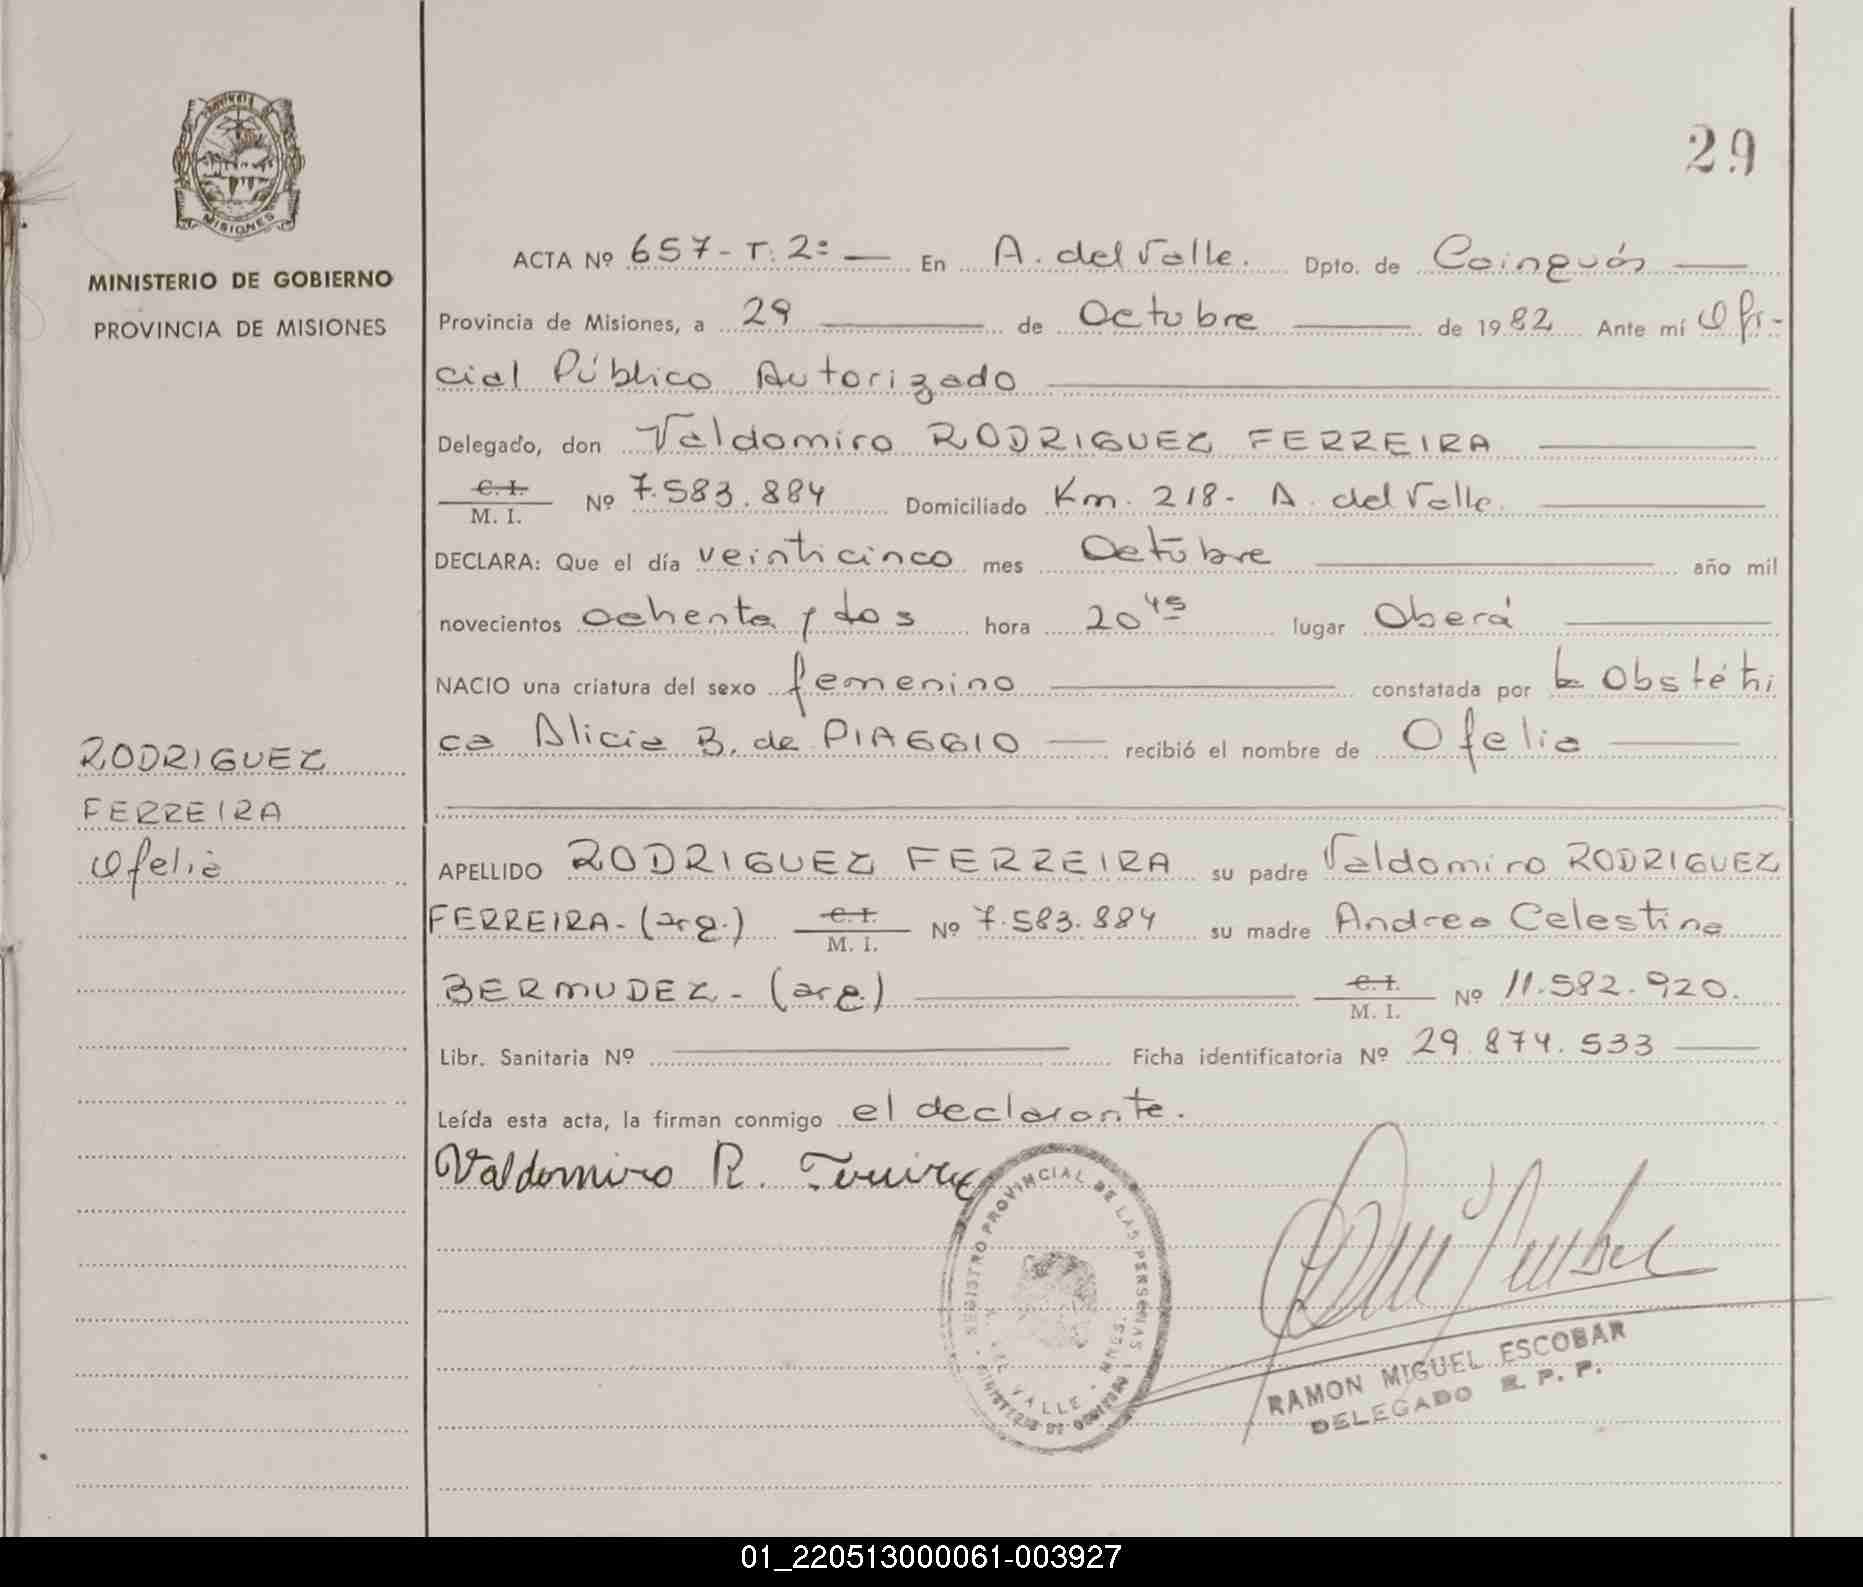 29
MINISTERIO DE GOBIERNO
PROVINCIA DE MISIONES
MISIONES
ACTA Nº 657-T. 2º — En A. del Valle. Dpto. de Cainguás —
Provincia de Misiones, a 29 — de Octubre — de 1982 Ante mí Ofi-
cial Público Autorizado —
Delegado, don Valdomiro RODRIGUEZ FERREIRA —
C. I. / M. I. Nº 7.583.884 Domiciliado Km. 218- A. del Valle. —
DECLARA: Que el día veinticinco mes Octubre — año mil
novecientos ochenta y dos hora 20 45 lugar Oberá —
NACIO una criatura del sexo femenino — constatada por la Obstétri
ca Alicia B. de PIAGGIO — recibió el nombre de Ofelia —
RODRIGUEZ
FERREIRA
Ofelia
APELLIDO RODRIGUEZ FERREIRA su padre Valdomiro RODRIGUEZ
FERREIRA- (arg.) C. I. / M. I. Nº 7.583.884 su madre Andrea Celestina
BERMUDEZ - (arg.) — C. I. / M. I. Nº 11.582.920.
Libr. Sanitaria Nº — Ficha identificatoria Nº 29.874.533 —
Leída esta acta, la firman conmigo el declarante.
Valdomiro R. Ferreira
REGISTRO PROVINCIAL DE LAS PERSONAS
MINISTERIO DE GOBIERNO
A. DEL VALLE - MNES.
RAMON MIGUEL ESCOBAR
DELEGADO R. P. P.
01_220513000061-003927